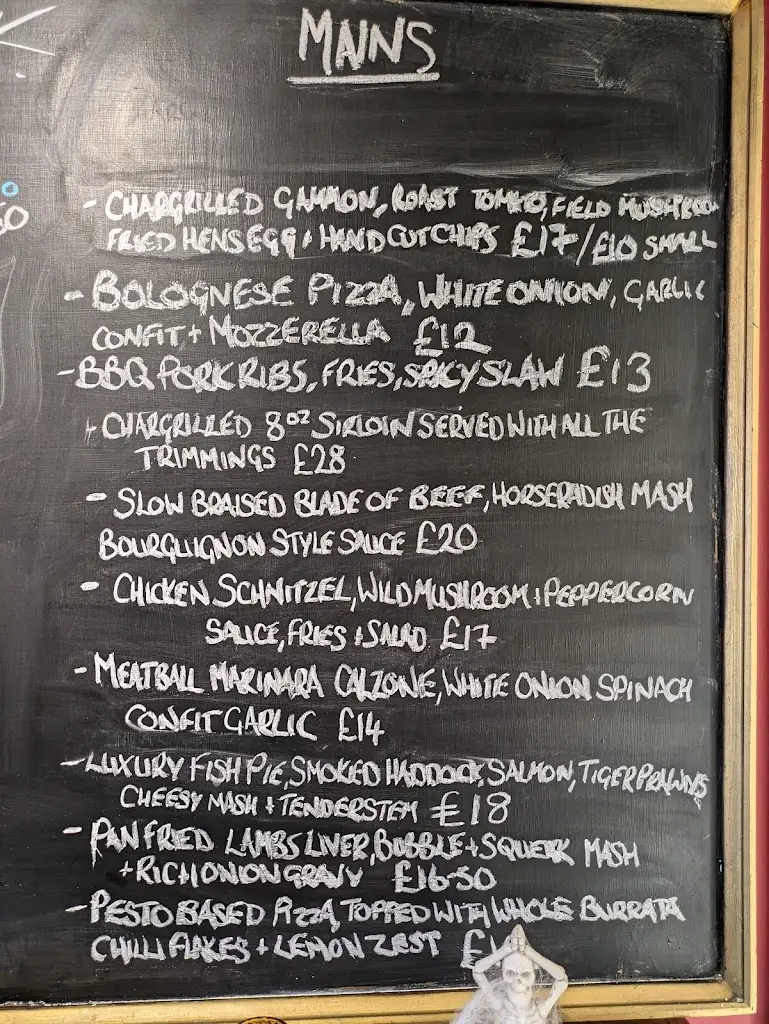 MAINS
- CHARGRILLED GAMMON, ROAST TOMATO, FIELD MUSHROOM
FRIED HENS EGG + HAND CUT CHIPS £17/£10 SMALL
- BOLOGNESE PIZZA, WHITE ONION, GARLIC
CONFIT + MOZZERELLA £12
- BBQ PORK RIBS, FRIES, SPICY SLAW £13
- CHARGRILLED 8oz SIRLOIN SERVED WITH ALL THE
TRIMMINGS £28
- SLOW BRAISED BLADE OF BEEF, HORSERADISH MASH
BOURGUIGNON STYLE SAUCE £20
- CHICKEN SCHNITZEL, WILD MUSHROOM + PEPPERCORN
SAUCE, FRIES + SALAD £17
- MEATBALL MARINARA CALZONE, WHITE ONION SPINACH
CONFIT GARLIC £14
- LUXURY FISH PIE, SMOKED HADDOCK, SALMON, TIGER PRAWNS
CHEESY MASH + TENDERSTEM £18
- PAN FRIED LAMBS LIVER, BUBBLE + SQUEEK MASH
+ RICH ONION GRAVY £16-50
- PESTO BASED PIZZA, TOPPED WITH WHOLE BURRATA
CHILLI FLAKES + LEMON ZEST